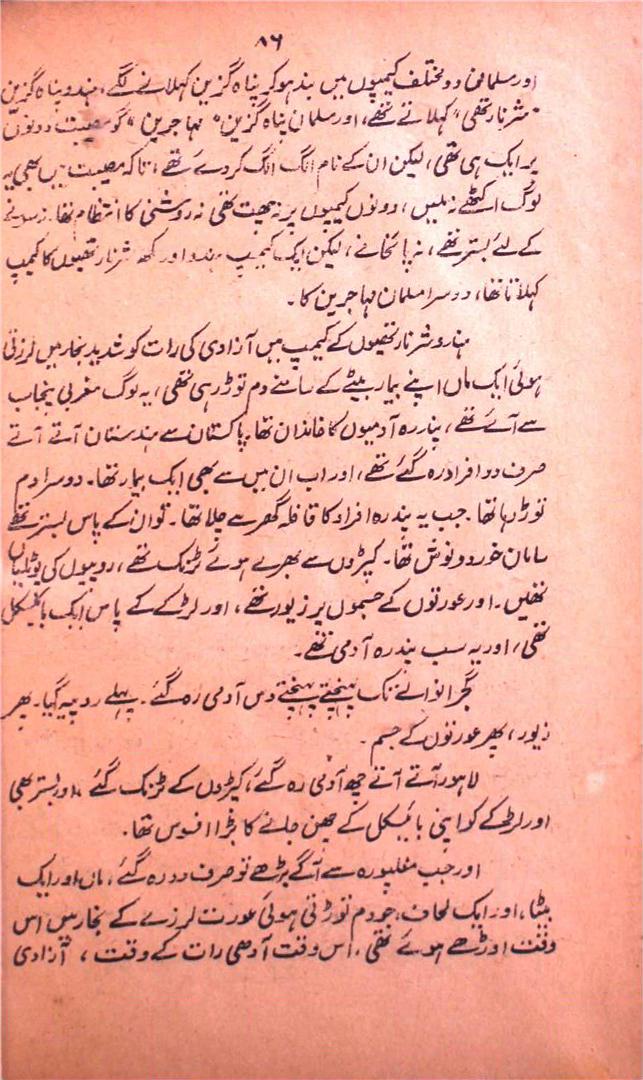 ۸۶
اور مسلمان دو مختلف کیمپوں میں بند ہو کر پناہ گزین کہلانے لگے، ہندو پناہ گزین
"شرنارتھی" کہلاتے تھے، اور مسلمان پناہ گزین "مہاجرین" گو مصیبت دونوں
پر ایک ہی تھی، لیکن ان کے نام الگ الگ کر دے تھے، تاکہ مصیبت میں بھی یہ
لوگ اکٹھے نہ ملیں، دونوں کیمپوں پر نہ چھت تھی نہ روشنی کا انتظام تھا۔ نہ سونے
کے لئے بستر تھے، نہ پائخانے، لیکن ایک کیمپ ہندو اور سکھ شرنارتھیوں کا کیمپ
کہلاتا تھا، دوسرا مسلمان مہاجرین کا۔
ہندو شرنارتھیوں کے کیمپ میں آزادی کی رات کو شدید بخار میں لرزتی
ہوئی ایک ماں اپنے بیمار بیٹے کے سامنے دم توڑ رہی تھی، یہ لوگ مغربی پنجاب
سے آئے تھے، پندرہ آدمیوں کا خاندان تھا۔ پاکستان سے ہندستان آتے آتے
صرف دو افراد رہ گئے تھے، اور اب ان میں سے بھی ایک بیمار تھا۔ دوسرا دم
توڑ رہا تھا۔ جب یہ پندرہ افراد کا قافلہ گھر سے چلا تھا۔ تو ان کے پاس بستر تھے
سامان خوردو نوش تھا۔ کپڑوں سے بھرے ہوئے ٹرنک تھے، روپیوں کی پوٹلیاں
تھیں۔ اور عورتوں کے جسموں پر زیور تھے، اور لڑکے کے پاس ایک بائیسکل
تھی، اور یہ سب پندرہ آدمی تھے۔
گجرانوالے تک پہنچتے پہنچتے دس آدمی رہ گئے۔ پہلے روپیہ گیا۔ پھر
زیور، پھر عورتوں کے جسم۔
لاہور آتے آتے چھ آدمی رہ گئے، کپڑوں کے ٹرنک گئے، اور بستر بھی
اور لڑکے کو اپنی بائیسکل کے چھن جانے کا بڑا افسوس تھا۔
اور جب مغلپورہ سے آگے بڑھے تو صرف دو رہ گئے، ماں اور ایک
بیٹا، اور ایک لحاف، جو دم توڑتی ہوئی عورت لرزے کے بخار میں اس
وقت اوڑھے ہوئے تھی، اس وقت آدھی رات کے وقت، آزادی